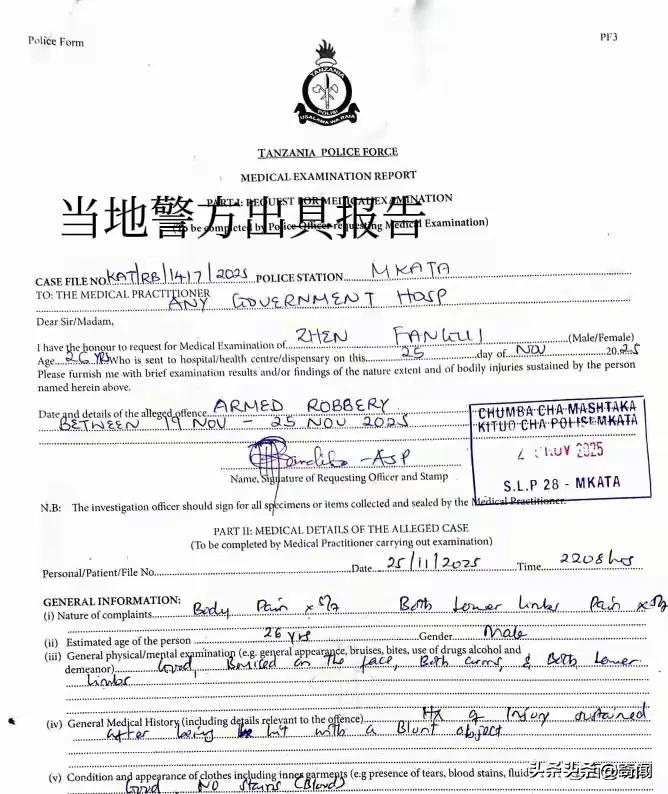 Police Form
PF3
TANZANIA
POLISI
USALAMA WA RAIA
TANZANIA POLICE FORCE
MEDICAL EXAMINATION REPORT
PART I: REQUEST FOR MEDICAL EXAMINATION
当地警方出具报告
(To be completed by Police Officer requesting Medical Examination)
CASE FILE NO KAT/RB/1417/2025 POLICE STATION MKATA
TO: THE MEDICAL PRACTITIONER
ANY GOVERNMENT HOSP
Dear Sir/Madam,
I have the honour to request for Medical Examination of ZHEN FANGUI (Male/Female)
Age 26 YRS Who is sent to hospital/health centre/dispensary on this 25 day of NOV 2025
Please furnish me with brief examination results and/or findings of the nature extent and of bodily injuries sustained by the person
named herein above.
Date and details of the alleged offence ARMED ROBBERY
BETWEEN 19 NOV - 25 NOV 2025
CHUMBA CHA MASHTAKA
KITUO CHA POLISI MKATA
NOV 2025
S.L.P 28 - MKATA
- ASP
Name, Signature of Requesting Officer and Stamp
N.B: The investigation officer should sign for all specimens or items collected and sealed by the Medical Practitioner.
PART II: MEDICAL DETAILS OF THE ALLEGED CASE
(To be completed by Medical Practitioner carrying out examination)
Personal/Patient/File No. Date 25/11/2025 Time 2208hrs
GENERAL INFORMATION:
(i) Nature of complaints Body Pain Both Lower limbs Pain
(ii) Estimated age of the person 26 yrs Gender Male
(iii) General physical/mental examination (e.g. general appearance, bruises, bites, use of drugs alcohol and
demeanor) Good, Bruised on the face, Both arms, & Both Lower
limbs
(iv) General Medical History (including details relevant to the offence) Hx of Injury sustained
after being hit with a Blunt object
(v) Condition and appearance of clothes including inner garments (e.g presence of tears, blood stains, fluid
Good. NO stains (Blood)
头条头条@奇闻